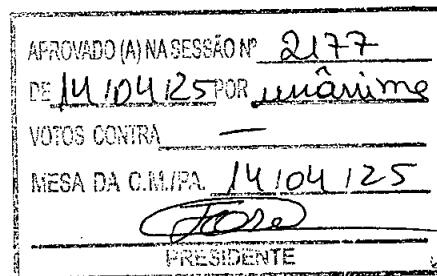 APROVADO (A) NA SESSÃO Nº 2177
DE 14/04/25 POR unânime
VOTOS CONTRA —
MESA DA C.M./PA. 14/04/25
PRESIDENTE